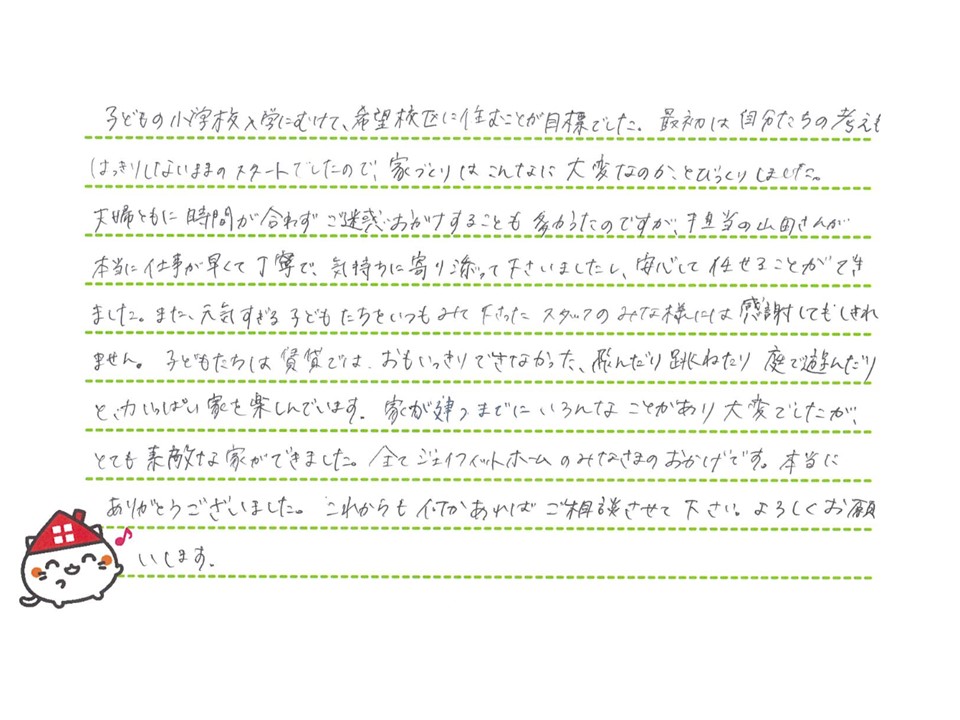 子どもの小学校入学にむけて、希望校区に住むことが目標でした。最初は自分たちの考えも
はっきりしないままのスタートでしたので、家づくりはこんなに大変なのか、とびっくりしました。
夫婦ともに時間が合わずご迷惑おかけすることも多かったのですが、担当の山田さんが
本当に仕事が早くて丁寧で、気持ちに寄り添って下さいましたし、安心して任せることができ
ました。また、元気すぎる子どもたちをいつもみて下さったスタッフのみな様には感謝してもしきれ
ません。子どもたちは賃貸では、おもいっきりできなかった、飛んだり跳ねたり庭で遊んだり
と、力いっぱい家を楽しんでいます。家が建つまでにいろんなことがあり大変でしたが、
とても素敵な家ができました。全てジェイフィットホームのみなさまのおかげです。本当に
ありがとうございました。これからも何かあればご相談させて下さい。よろしくお願
いします。